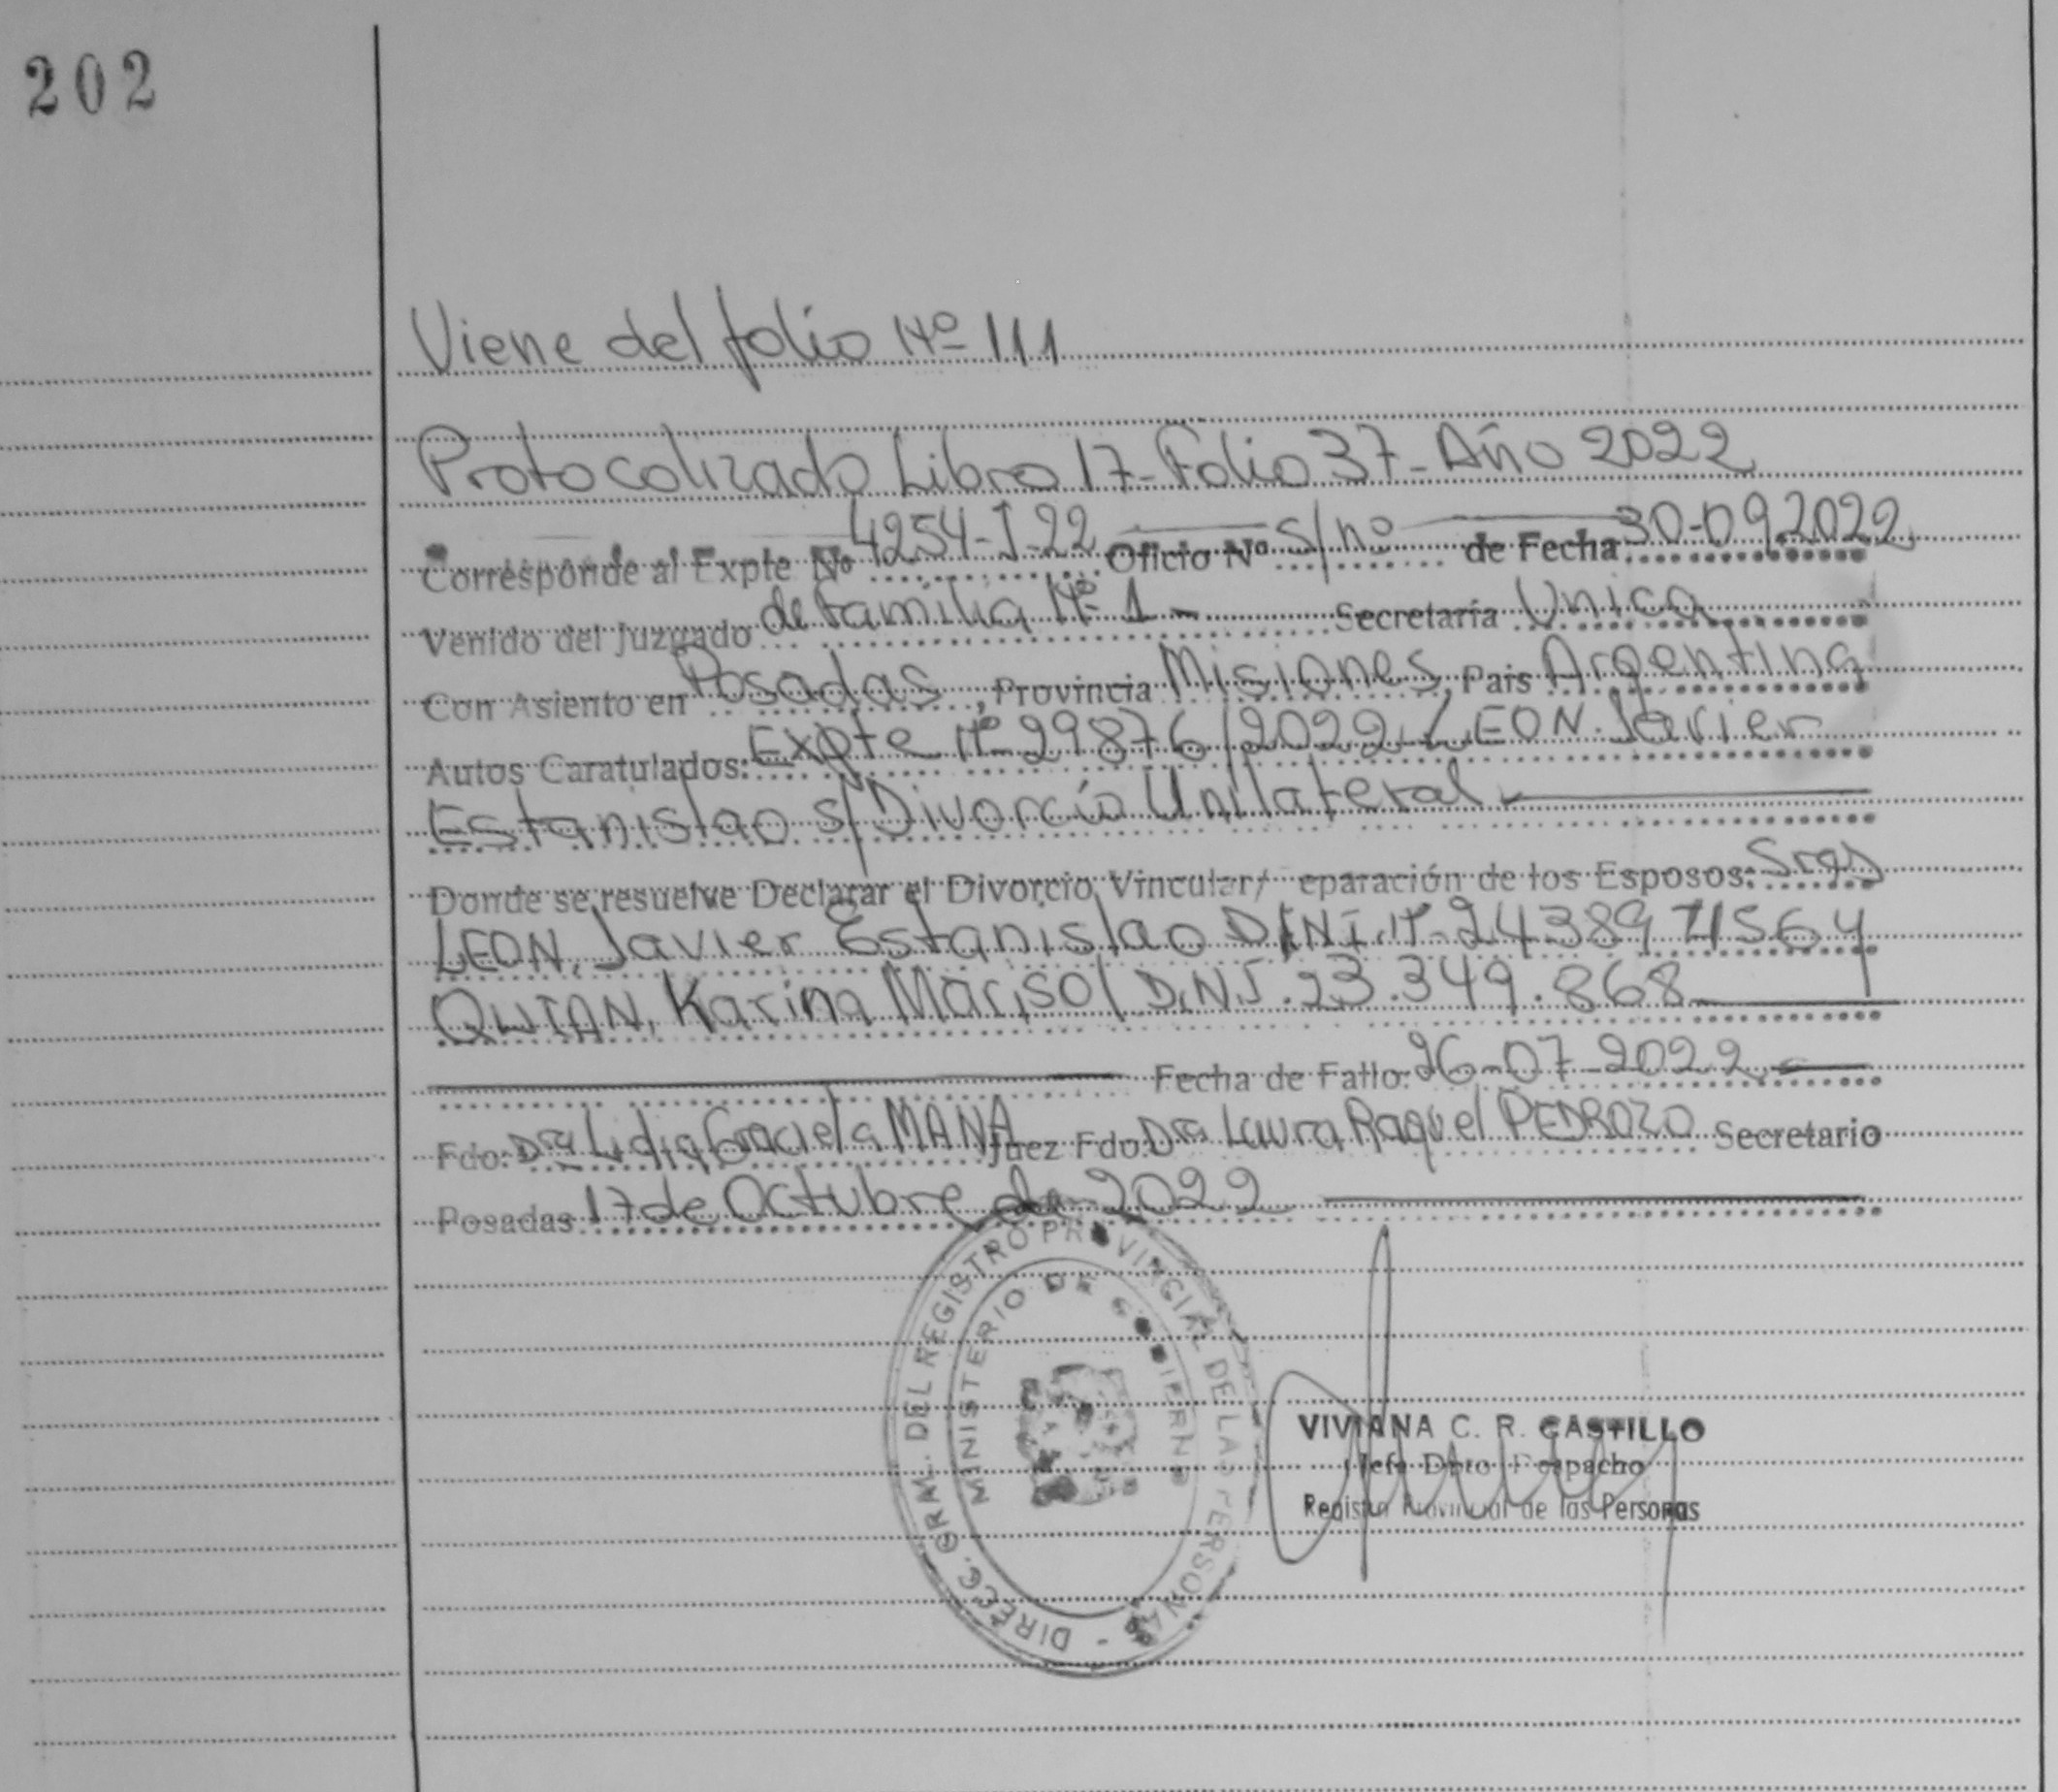 202
Viene del folio Nº 111
Protocolizado Libro 17-Folio 37-Año 2022
Corresponde al Expte Nº 4254-J-22 Oficio Nº S/nº de Fecha 30-09-2022
Venido del Juzgado de Familia Nº 1- Secretaría Unica
Con Asiento en Posadas, Provincia Misiones, Pais Argentina
Autos Caratulados: Expte nº 29876/2022 LEON Javier
Estanislao s/Divorcio Unilateral
Donde se resuelve Declarar el Divorcio Vincular/ eparación de los Esposos:
LEON, Javier Estanislao D.N.I. nº
QUIAN, Karina Marisol D.N.I. 23.349.868
Fecha de Fallo: 26-07-2022
Fdo: Dra Lidia Graciela MANA Juez Fdo: Dra Laura Raquel PEDROZO Secretario
Posadas 17 de Octubre de 2022
DIRECC. GRAL. DEL REGISTRO PROVINCIAL DE LAS PERSONAS -
MINISTERIO DE GOBIERNO
VIVIANA C. R. CASTILLO
Jefe Dpto Despacho
Registro Provincial de las Personas